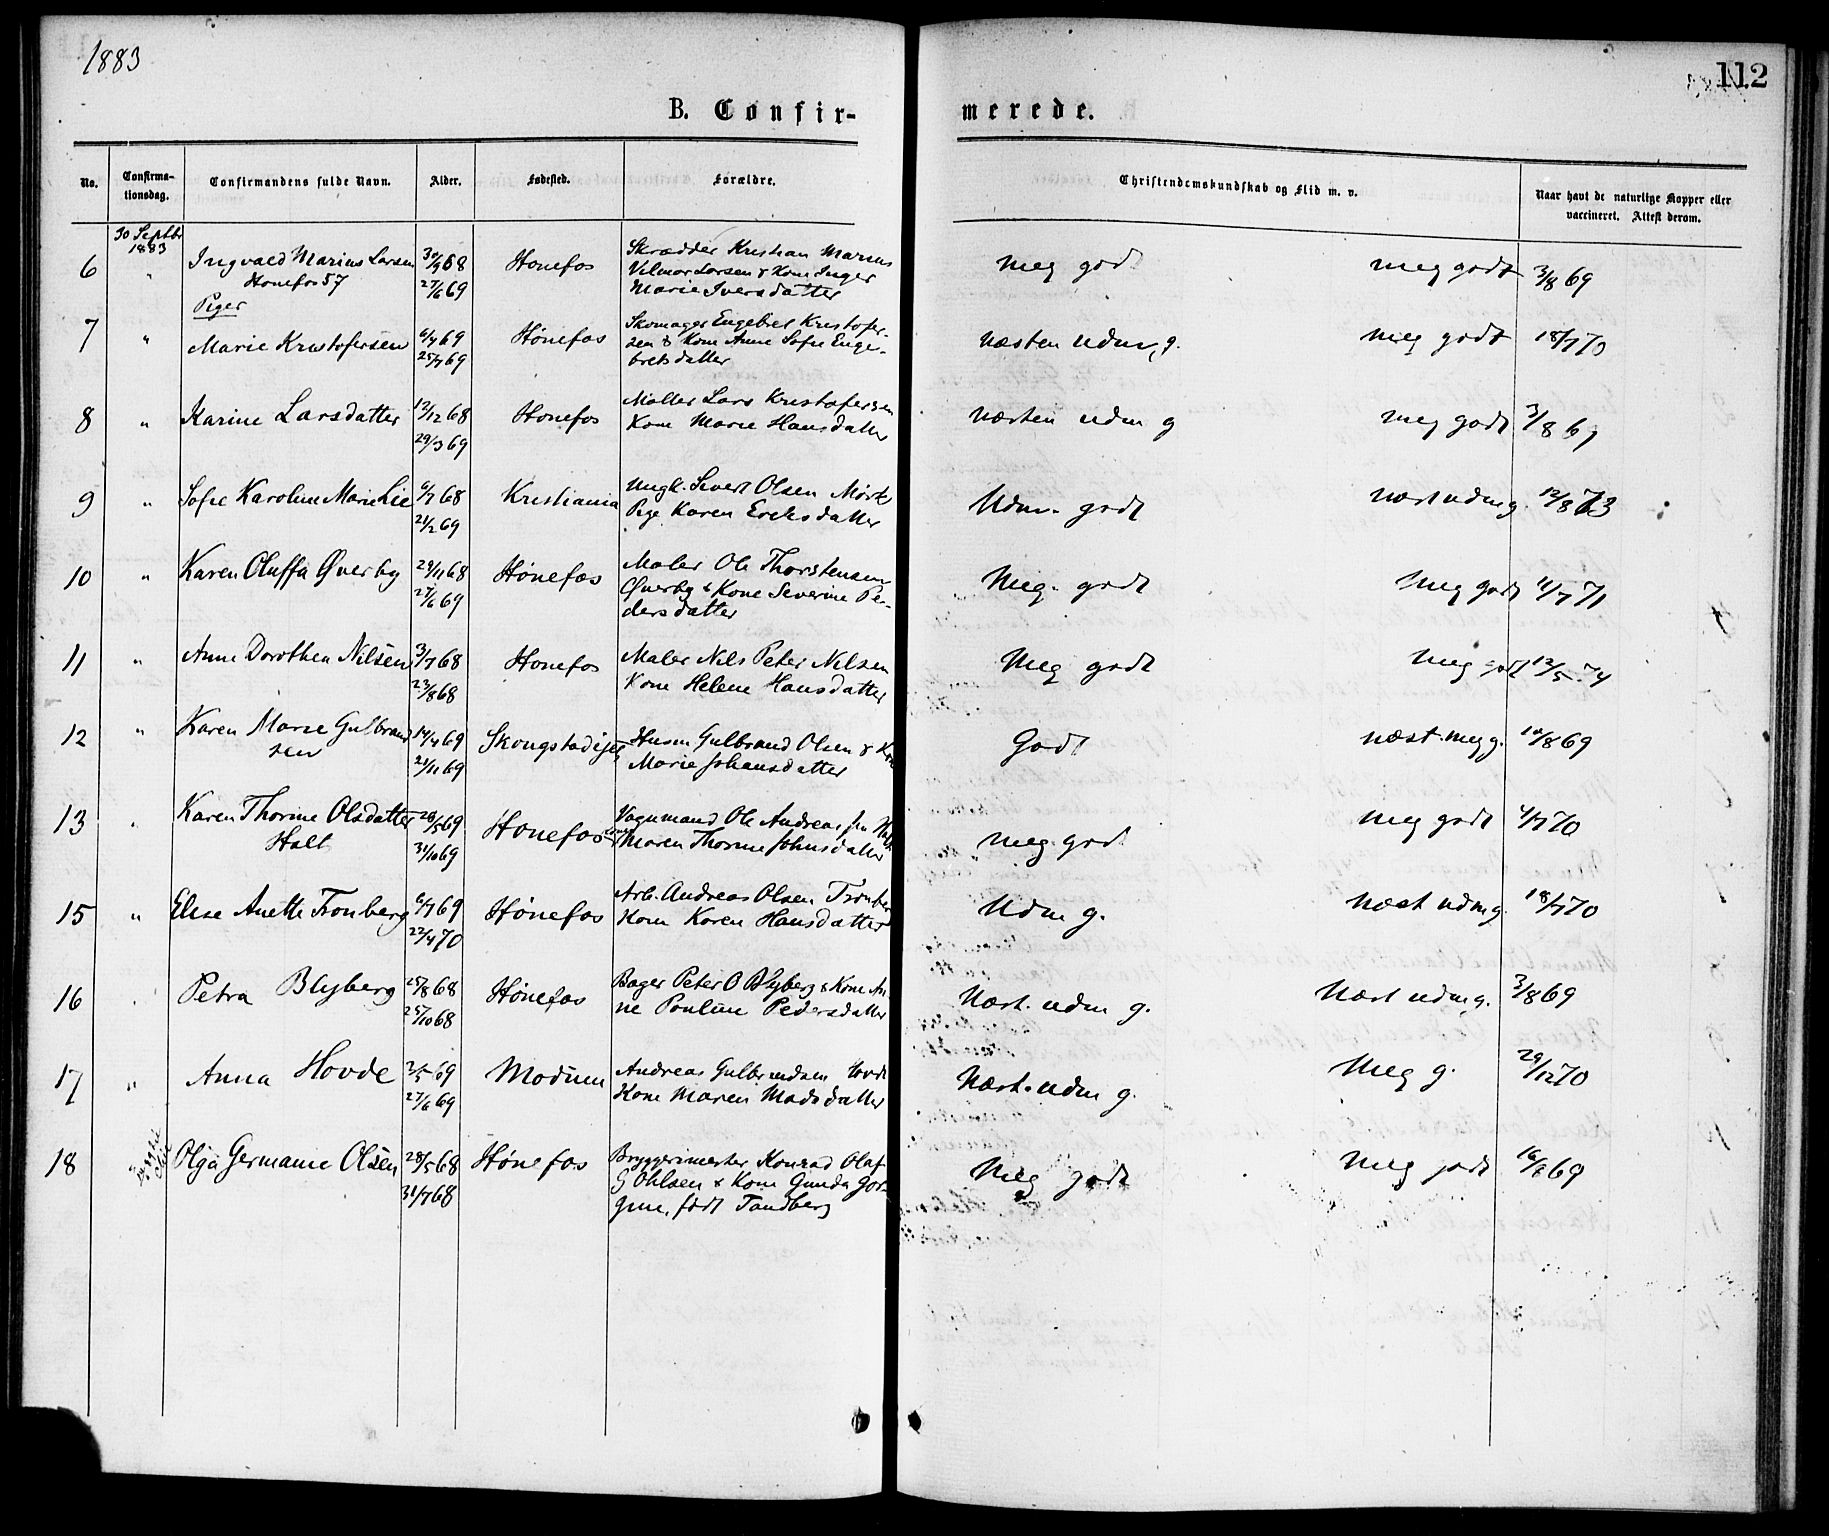 1883
112
B. Confir-
merede.
No.
Confirma-
tionsdag.
Confirmandens fulde Navn.
Alder.
Fødested.
Forældre.
Christendomskundskab og Flid m. v.
Naar havt de naturlige Kopper eller
vaccineret. Attest derom.
30 Septbr
1883
6 " Ingvald Marius Larsen 30/9 68 Hønefos Skrædder Kristian Marius meg godt meg godt 3/8 69
Hønefos 57 27/6 69 Vilmor Larsen & Kone Inger
Marie Iversdatter
Piger
7 " Marie Kristofersen 6/4 69 Hønefos Skomager Engebret Kristofer- næsten udm. g. meg godt 18/7 70
25/7 69 sen & Kone Anne Sofie Enge-
bretsdatter
8 " Karine Larsdatter 12/12 68 Hønefos Møller Lars Kristofersen næsten udm g meg godt 3/8 69
29/3 69 Kone Marie Hansdatter
9 " Sofie Karoline Marie Lie 6/7 68 Kristiania Ungk. Sivert Olsen Mørk Udm. godt næst udm g. 12/8 73
21/2 69 Pige Karen Ericksdatter
10 " Karen Oluffa Øverby 29/11 68 Hønefos Maler Ole Thorstensen Meg. godt Meg godt 4/7 71
27/6 69 Øverby & Kone Severine Pe-
dersdatter
11 " Anne Dorothea Nilsen 3/7 68 Hønefos Maler Nils Peter Nilsen Meg godt Meg godt 12/5 74
23/8 68 Kone Helene Hansdatter
12 " Karen Marie Gulbrand 14/4 69 Husm Gulbrand Olsen & Kone Godt næst. meg g. 10/8 69
sen 21/11 69 Marie Johansdatter
13 " Karen Thorine Olsdatter 28/5 69 Hønefos Vognmand Ole Andreas meg. godt meg godt 4/7 70
Holt 31/10 69 Maren Thorine Johnsdatter
15 " Elise Anette Tronberg 6/9 69 Hønefos Arb. Andreas Olsen Tronberg Udm g. Næst udm g. 18/7 70
22/4 70 Kone Karen Hansdatter
16 " Petra Blyberg 25/8 68 Hønefos Bager Peter O Blyberg & Kone An- Næst. udm g. Næst udm g. 3/8 69
25/10 68 ne Pouline Pedersdatter
17 " Anna Hovde 2/5 69 Modum Andreas Gulbrandsen Hovde Næst. udm g. Meg g. 29/12 70
27/6 69 Kone Maren Madsdatter
18 Olga Germanie Olsen 28/5 68 Hønefos Bryggerimester Konrad Olaf Meg godt Meg godt 69
31/7 68 G Ohlsen & Kone Gunda Jør-
gine, født Tandberg